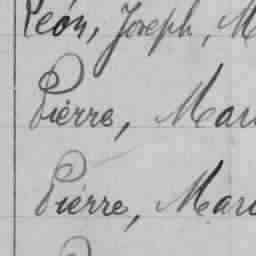 León, Joseph, M
Pierre, Mari
Pierre, Mari